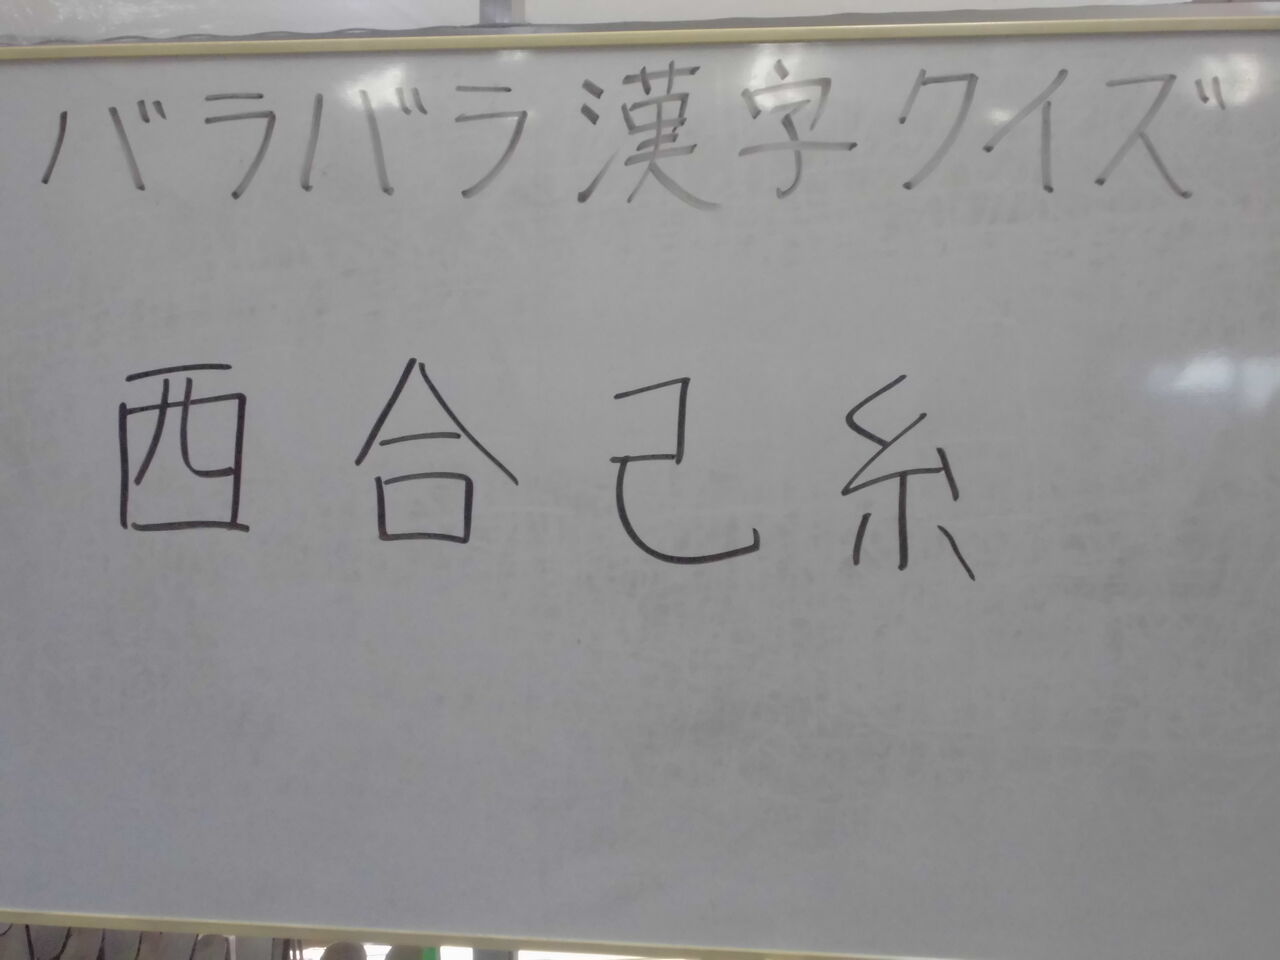 バラバラ漢字クイズ
西合己糸